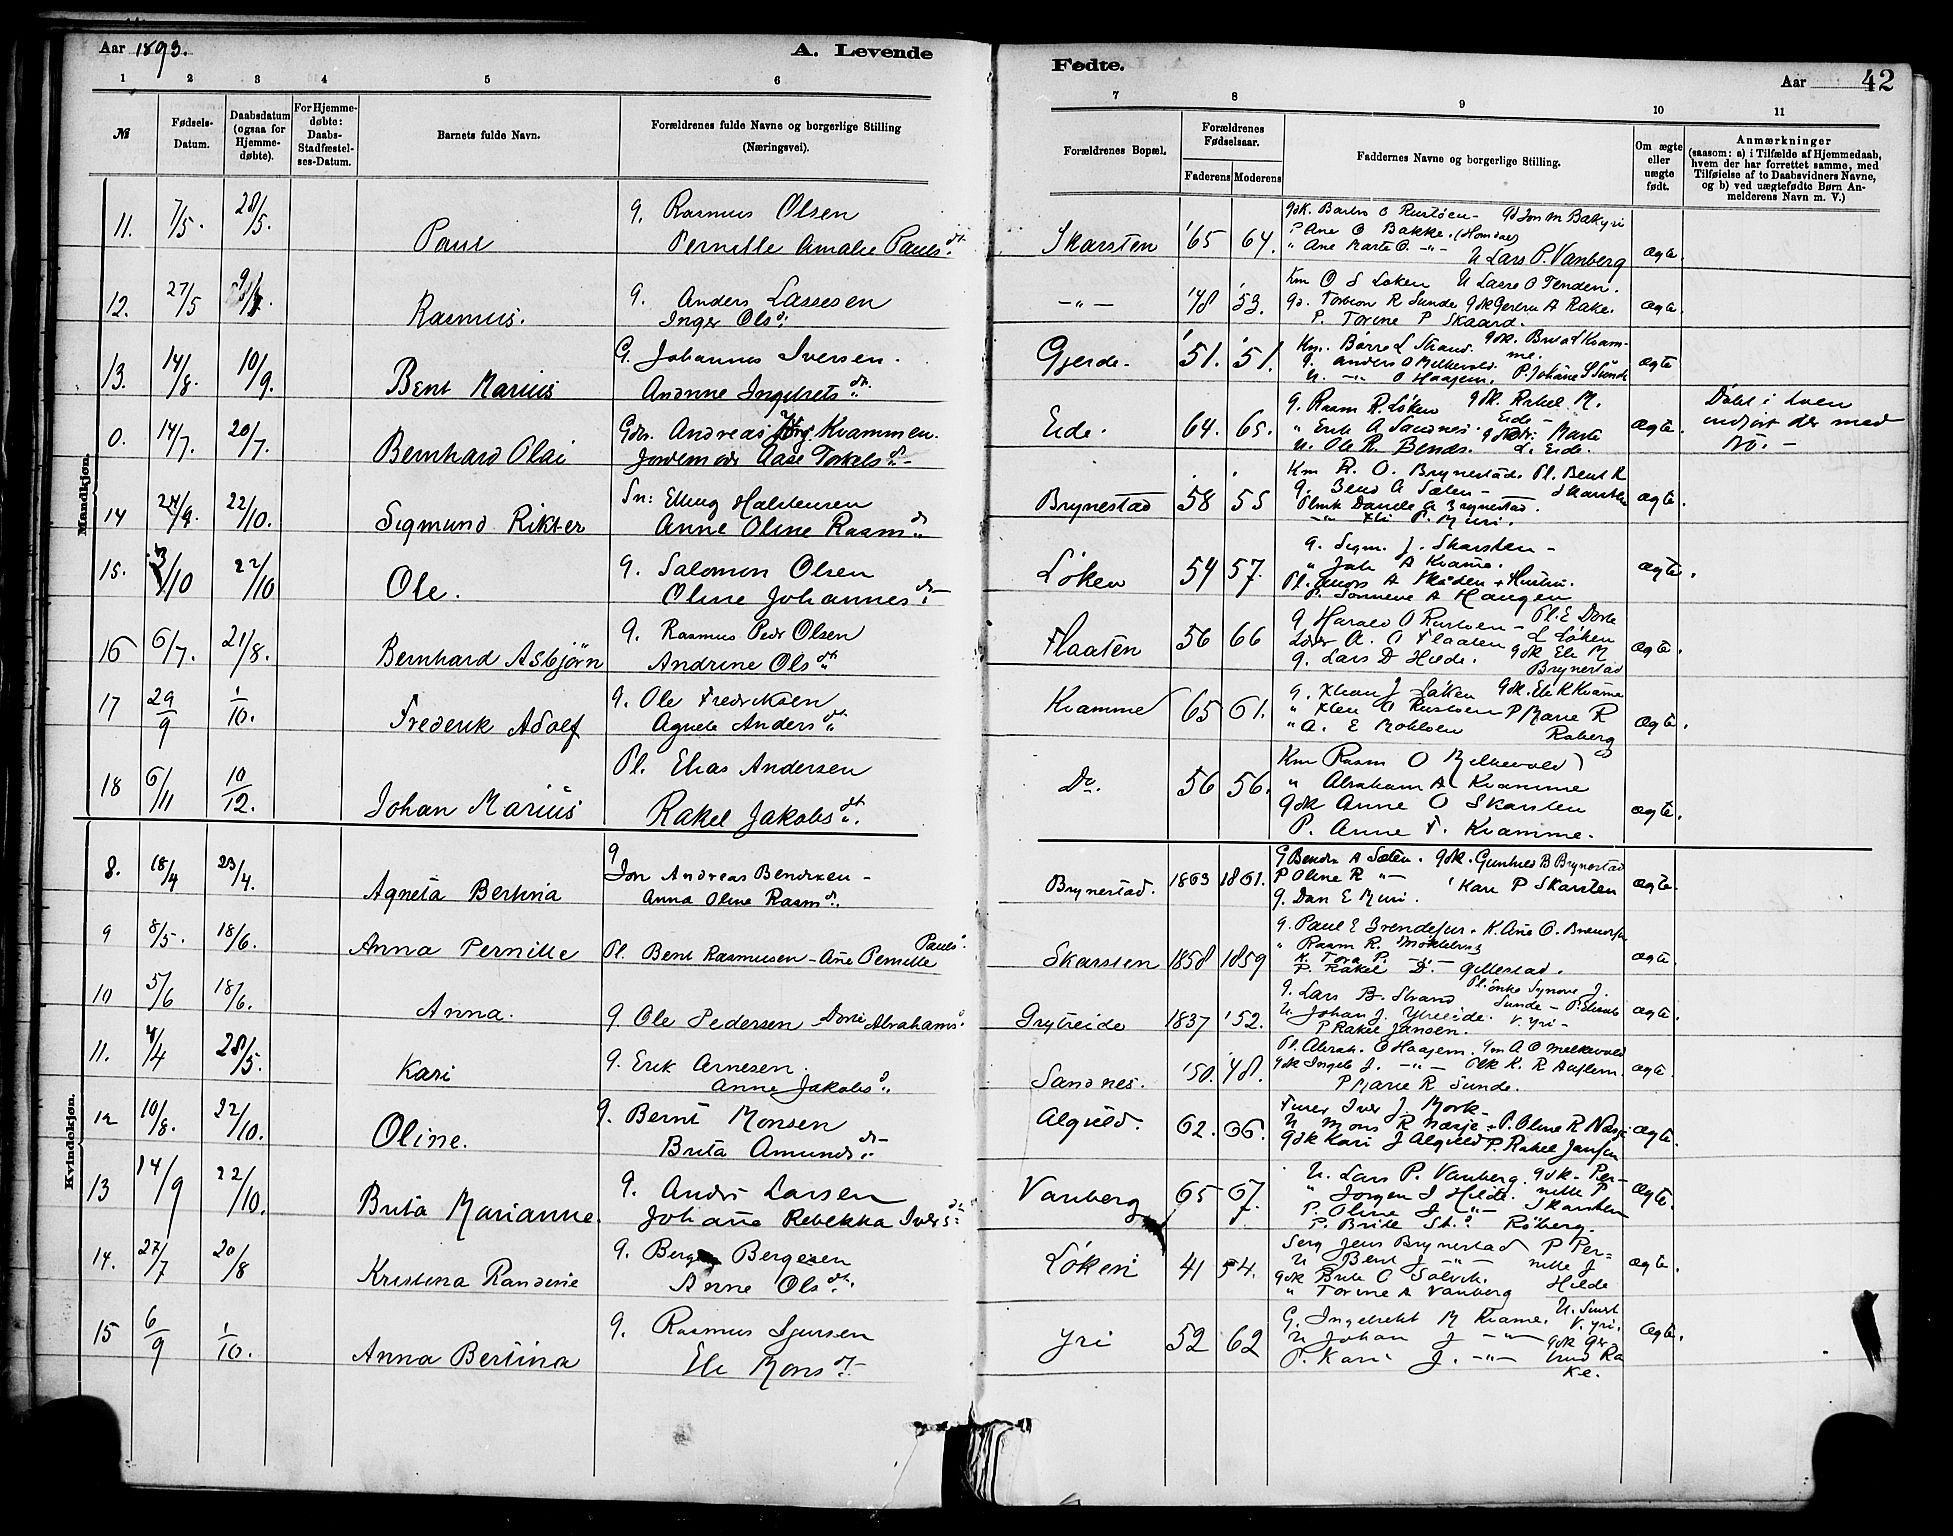 Aar 1893. A. Levende
1 2 3 4 5 6
№
Fødsels-
Datum.
Daabsdatum
(ogsaa for
Hjemme-
døbte).
For Hjemme-
døbte:
Daabs-
Stadfæstel-
ses-Datum.
Barnets fulde Navn.
Forældrenes fulde Navne og borgerlige Stilling
(Næringsvei).
Mandkjøn.
11. 7/5. 28/5. Paul
G. Rasmus Olsen
Pernille Amalie Pauls dt.
12. 27/5 Rasmus.
G. Anders Lassesen
Inger Ols d.
13. 14/8. 10/9. Bent Marius
G. Johannes Iversen.
Ananne Ingebrets dt.
0. 14/7. 20/7. Bernhard Olai
Gdbr. Andreas Kvammen.
Jordemoder Aase Torkels d.
14 24/9. 22/10. Sigmund Rikter
Sn: Elling Halstensen
Anne Oline Rasm d.
15. 3/10 22/10 Ole.
G. Salomon Olsen
Oline Johannes dt.
16 6/7. 21/8. Bernhard Asbjörn
G. Rasmus Pedr Olsen
Andrine Ols dt.
17 29/9 1/10. Frederik Adolf
G. Ole Fredriksen
Agnete Anders dt.
18 6/11 10/12. Johan Marius
Pl. Elias Andersen
Rakel Jakobs dt.
Kvindekjøn.
8. 18/4 23/4. Agneta Bertina
G
Jon Andreas Bendixen -
Anna Oline Rasm d.
9 8/5. 18/6. Anna Pernille
Pl. Bent Rasmusen - Ane Pernille Pauls d.
10 5/6 18/6. Anna.
G. Ole Pedersen - Dorte Abrahams d.
11. 4/4 28/5. Kari
G. Erik Arnesen.
Anne Jakobs d.
12 10/8. 22/10. Oline.
G. Bernt Monsen
Brita Amunds dt.
13 14/9 22/10. Brita Marianne.
G. Andr. Larsen
Johane Rebekka Ivers dt.
14. 27/7 20/8 Kristina Randine
G. Berge Bergesen
Anne Ols dt.
15 6/9 1/10. Anna Bertina
G. Rasmus Sjursen
Eli Mons dt.
Fødte. Aar 42
7 8 9 10 11
Forældrenes Bopæl.
Forældrenes
Fødselsaar.
Faderens Moderens
Faddernes Navne og borgerlige Stilling.
Om ægte
eller
uægte
født.
Anmærkninger
(saasom: a) i Tilfælde af Hjemmedaab,
hvem der har forrettet samme, med
Tilføielse af to Daabsvidners Navne,
og b) ved uægtefødte Børn An-
melderens Navn m. V.)
Skarsten '65 64.
P Ane O Bakke. (Homdae)
" Ane Marte O. -"-
U Lars P. Vanberg ægte.
-"- '48 53.
Km O S Løken U Lasse O Tenden.
Gd. Torbion R Sunde Gdk Gertru A Rake.
P. Torine P Skaard. ægte.
Gjerde. '51. '51.
Km. Børre L Strand. Gdk. Brita L Kvam-
me.
G. Anders O Melkevold.
U. -"- O Haajem. P. Johane S Sunde ægte
Eide. 64. 65.
G. Rasm R. Løken Gdk. Rakel M.
Eide -
" Erik A Sandnes.
U. Ole R. Bends. L. Eide. ægte.
Døbt i Loen
indført der med
No. -
Brynestad 58 55
Km R. O. Brynestad. Pl. Bent R
G. Bend A Sæten - Skarsten
Plmk Danele A Brynestad.
-"- Eli P. Muri. ægte.
Løken 54 57.
G. Sigm. J. Skarsten -
" Jak A Kvame.
Pl. Anders A Skåden + Hustru.
P. Sønneve A Haugen ægte.
Flaaten 56 66
G Harald O Rustøen - Pl. E Dorte
Lærer A. O Flaaten L Løken
G. Lars D Hilde. Gdk Eli M
Brynestad ægte.
Kvamme 65 61.
G. J Løken Gdk. Eli K Kvame
" O Rustøen P Marie R
" A. E Moklsen Raberg ægte.
Do. 56 56.
Km Rasm O Melkevold
" Abraham A Kvamme
Gdk Anne O Skarsten
P. Anne F. Kvamme. ægte.
Brynestad. 1863 1861.
G Bendix A Sæten. Gdk. Gunhild B Brynestad
P Oline R -"- Kari P Skarsten
G. Dan E Muri. ægte.
Skarsten 1858 1859
G. Paul E Grendefur. K. Ane O.
" Rasm R.
K. Tora P. -"-
P. Rakel D. Gillestad. ægte.
Grytreide 1837 '52.
G. Lars B. Strand Pl. Enke Synove J.
Sunde -
U. Johan J. Ytreeide. V. Yri -
P Rakel Jansen. ægte.
Sandnes. '50. '48.
Pl. Abrah. E Haajem. Gm A O Melkevold
Gdk Ingeb J. -"-
P Marie R Sunde. ægte.
Algvild. 62. 66.
Furer Iver J. Mork -
U Mons R. Næsje + P. Oline R Næsje
Gdk Kari J Algvild P. Rakel Jansen ægte.
Vanberg 65 67.
U. Lars P. Vanberg. Gdk. Per-
" Jørgen I Hilde. nille P
P. Oline J. -"- Skarsten
P. Brite St. d. Røberg. ægte.
Løken 41 54.
Serg Jens Brynestad P Per=
U Bent J -"- nille J
Gdk Brite O Solvik. Hilde
" Torine A Vanberg ægte.
Yri 52 62
G. Ingebrekt M Kvame. U. Sivert
V. Yri.
U Johan J -"- Gdk Ger
P. Kari J. -"- trud Ra
ke. ægte.